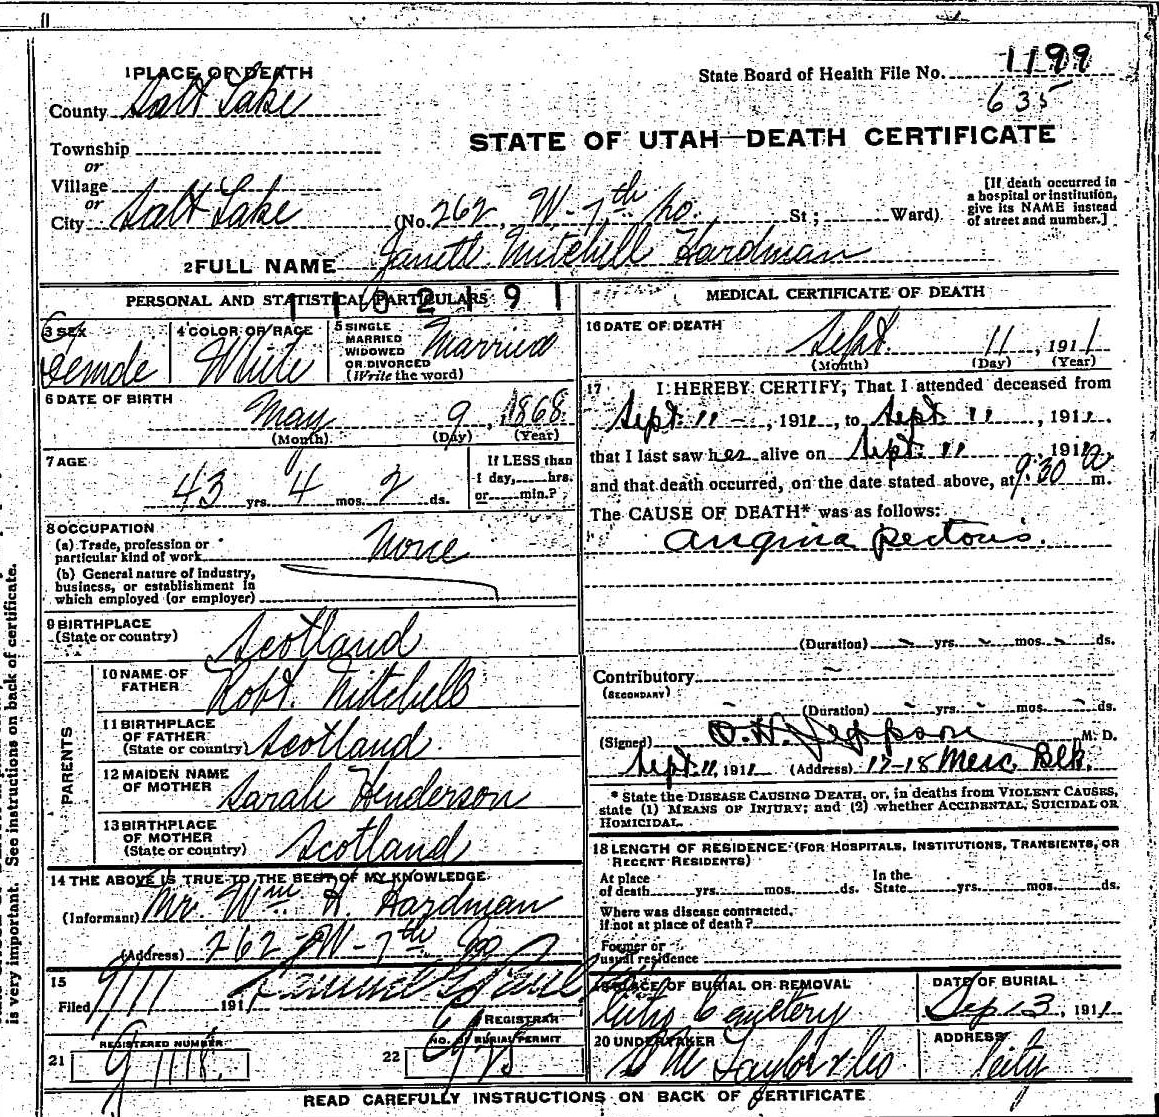 1 PLACE OF DEATH
County Salt Lake
Township
or
Village
or
City Salt Lake (No. 262, W- 7th So. St; Ward)
State Board of Health File No. 1199
635
STATE OF UTAH—DEATH CERTIFICATE
[If death occurred in
a hospital or institution,
give its NAME instead
of street and number.]
2 FULL NAME Janett Mitchell Hardman
PERSONAL AND STATISTICAL PARTICULARS
1102191
3 SEX
Female
4 COLOR OR RACE
White
5 SINGLE
MARRIED
WIDOWED
OR DIVORCED
(Write the word)
Married
6 DATE OF BIRTH
May 9, 1868
(Month) (Day) (Year)
7 AGE
43 yrs. 4 mos. 2 ds.
If LESS than
1 day, hrs.
or min.?
8 OCCUPATION
(a) Trade, profession or
particular kind of work None
(b) General nature of industry,
business, or establishment in
which employed (or employer)
9 BIRTHPLACE
(State or country) Scotland
PARENTS
10 NAME OF
FATHER Robt. Mitchell
11 BIRTHPLACE
OF FATHER
(State or country) Scotland
12 MAIDEN NAME
OF MOTHER Sarah Henderson
13 BIRTHPLACE
OF MOTHER
(State or country) Scotland
14 THE ABOVE IS TRUE TO THE BEST OF MY KNOWLEDGE
(Informant) Mr. Wm H Hardman
(Address) 262 W- 7th So
15
Filed 9/11 191
REGISTRAR
REGISTERED NUMBER
21 9 1118.
NO. OF BURIAL PERMIT
22
MEDICAL CERTIFICATE OF DEATH
16 DATE OF DEATH
Sept. 11, 1911
(Month) (Day) (Year)
17 I HEREBY CERTIFY, That I attended deceased from
Sept. 11 -, 1911, to Sept. 11, 1911.
that I last saw her alive on Sept. 11 1911
and that death occurred, on the date stated above, at 9:30 a m.
The CAUSE OF DEATH* was as follows:
Angina pectoris.
(Duration) - yrs. - mos. - ds.
Contributory -
(SECONDARY)
(Duration) - yrs. - mos. - ds.
(Signed) O. H. Jeppson M. D.
Sept. 11, 1911 (Address) 17-18 Merc. Blk.
* State the DISEASE CAUSING DEATH, or, in deaths from VIOLENT CAUSES,
state (1) MEANS OF INJURY; and (2) whether ACCIDENTAL, SUICIDAL OR
HOMICIDAL.
18 LENGTH OF RESIDENCE (FOR HOSPITALS, INSTITUTIONS, TRANSIENTS, OR
RECENT RESIDENTS)
At place
of death yrs. mos. ds.
In the
State yrs. mos. ds.
Where was disease contracted,
if not at place of death?
Former or
usual residence
19 PLACE OF BURIAL OR REMOVAL
City Cemetery
DATE OF BURIAL
Sep 13, 1911
20 UNDERTAKER
S M Taylor & Co
ADDRESS
City
READ CAREFULLY INSTRUCTIONS ON BACK OF CERTIFICATE
is very important. See instructions on back of certificate.